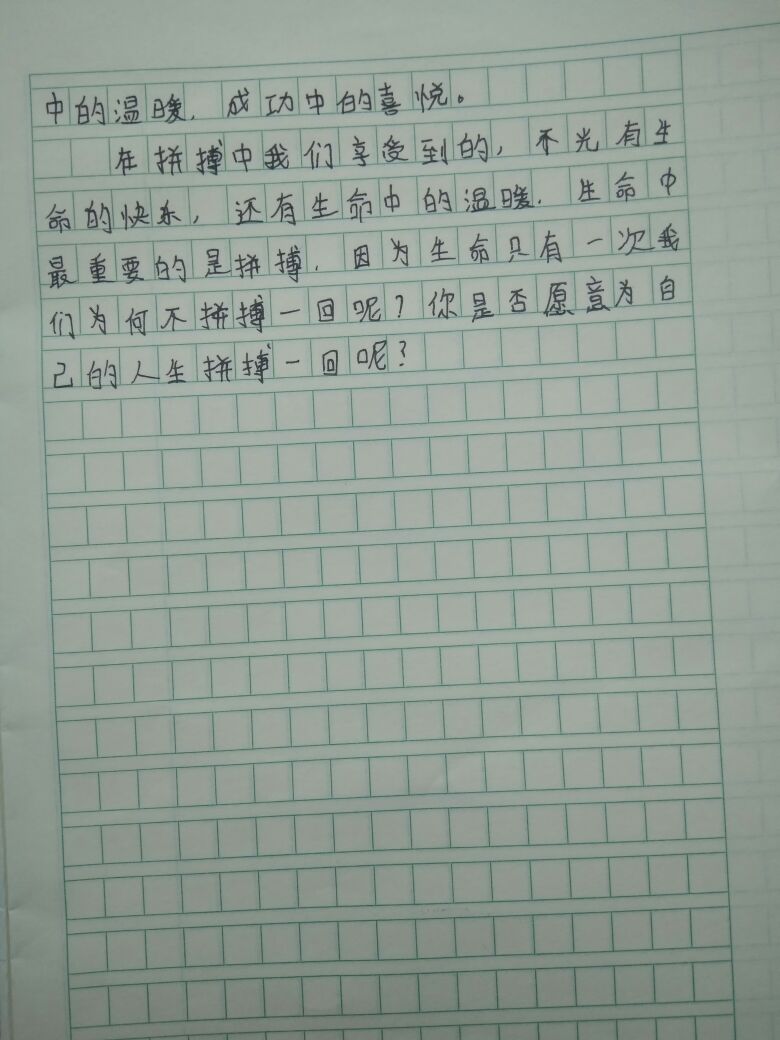 中的温暖，成功中的喜悦。
在拼搏中我们享受到的，不光有生
命的快乐，还有生命中的温暖，生命中
最重要的是拼搏，因为生命只有一次我
们为何不拼搏一回呢？你是否愿意为自
己的人生拼搏一回呢？